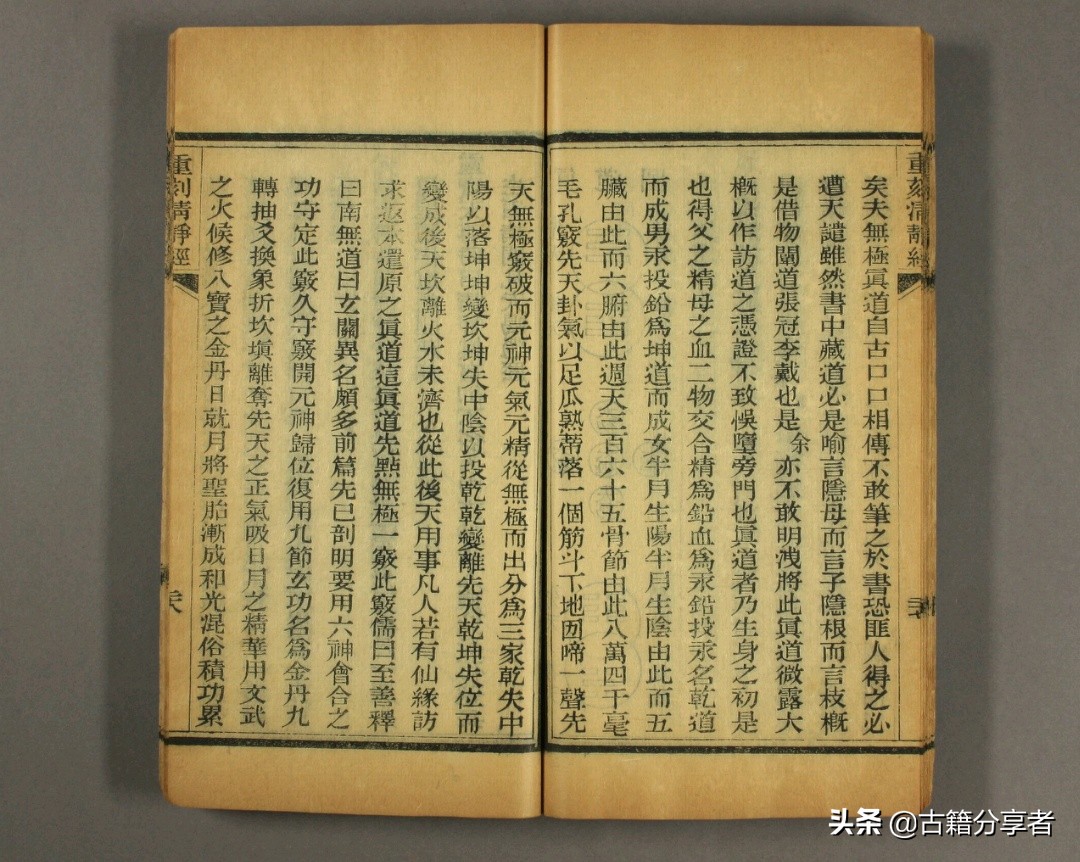 重刻清靜經
矣夫無極眞道自古口口相傳不敢筆之於書恐匪人得之必
遭天譴雖然書中藏道必是喻言隱母而言子隱根而言枝概
是借物闡道張冠李戴也是余亦不敢明洩將此眞道微露大
概以作訪道之憑證不致悞墮旁門也眞道者乃生身之初是
也得父之精母之血二物交合精爲鉛血爲汞鉛投汞名乾道
而成男汞投鉛爲坤道而成女半月生陽半月生陰由此而五
臟由此而六腑由此週天三百六十五骨節由此八萬四千毫
毛孔竅先天卦氣以足瓜熟蒂落一個筋斗下地囬啼一聲先
天無極竅破而元神元氣元精從無極而出分爲三家乾失中
陽以落坤坤變坎坤失中陰以投乾乾變離先天乾坤失位而
變成後天坎離火水未濟也從此後天用事凡人若有仙緣訪
求返本還原之眞道這眞道先點無極一竅此竅儒曰至善釋
曰南無道曰玄關異名頗多前篇先已剖明要用六神會合之
功守定此竅久守竅開元神歸位復用九節玄功名爲金丹九
轉抽爻換象折坎塡離奪先天之正氣吸日月之精華用文武
之火候修八寶之金丹日就月將聖胎漸成和光混俗積功累
重刻清靜經
六
头条 @古籍分享者